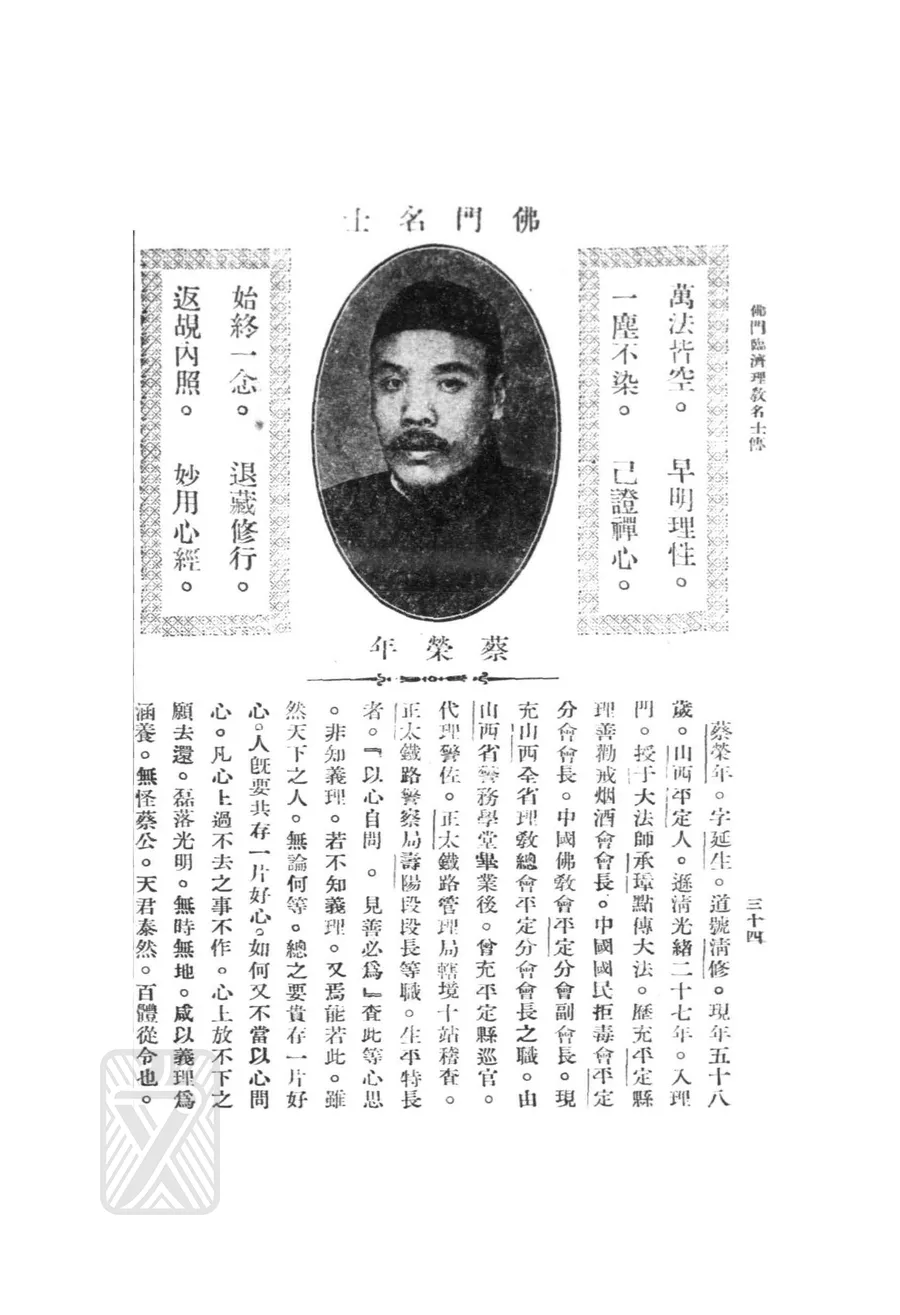 佛門臨濟理教名士傳
三十四
佛門名士
萬法皆空。早明理性。
一塵不染。已證禪心。
始終一念。退藏修行。
返覘內照。妙用心經。
蔡榮年
蔡榮年。字延生。道號清修。現年五十八
歲。山西平定人。遜清光緒二十七年。入理
門。授于大法師承璋點傳大法。歷充平定縣
理善勸戒烟酒會會長。中國國民拒毒會平定
分會會長。中國佛敎會平定分會副會長。現
充山西全省理敎總會平定分會會長之職。由
山西省警務學堂畢業後。曾充平定縣巡官。
代理警佐。正太鐵路管理局轄境十站稽查。
正太鐵路警察局壽陽段段長等職。生平特長
者。『以心自問。見善必爲』査此等心思
。非知義理。若不知義理。又焉能若此。雖
然天下之人。無論何等。總之要貴存一片好
心。人旣要共存一片好心。如何又不當以心問
心。凡心上過不去之事不作。心上放不下之
願去還。磊落光明。無時無地。咸以義理爲
涵養。無怪蔡公。天君泰然。百體從令也。